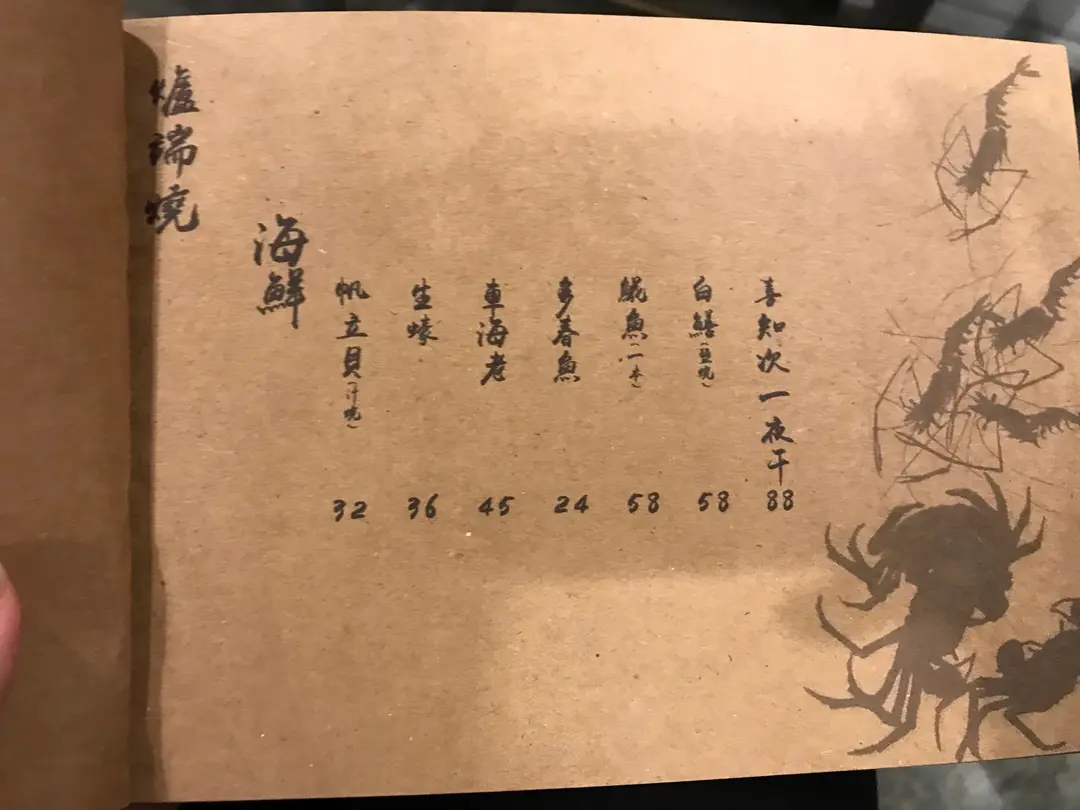 爐端燒
海鮮
帆立貝(汁燒)
32
生蠔
36
車海老
45
多春魚
24
魷魚(一本)
58
白鱔(鹽燒)
58
喜知次一夜干
88